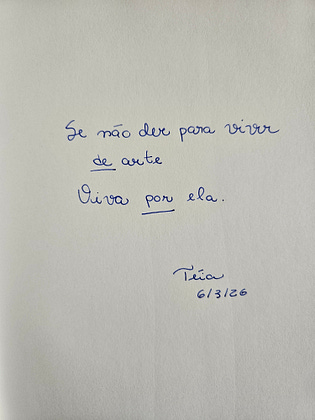 Se não der para viver
de arte
Viva por ela.
Téia
6/3/26